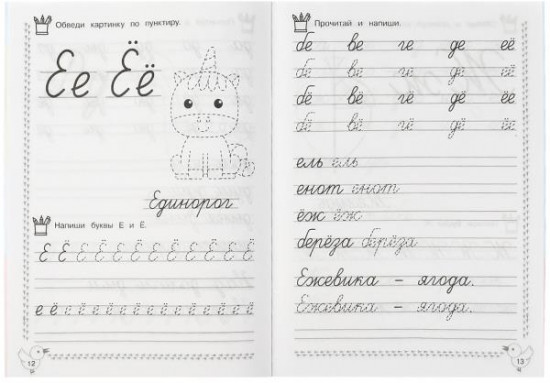 Обведи картинку по пунктиру.
Е е Ё ё
Единорог
Напиши буквы Е и Ё.
Е Ё Е Ё Е Ё Е Ё Е Ё Е Ё
е ё е ё е ё е ё е ё е ё е ё е ё
12
Прочитай и напиши.
бе ве ге де её
бе ве ге де её
бё вё гё дё ёе
бё вё гё дё ёе
ель ель
енот енот
ёж ёж
берёза берёза
Ежевика – ягода.
Ежевика – ягода.
13